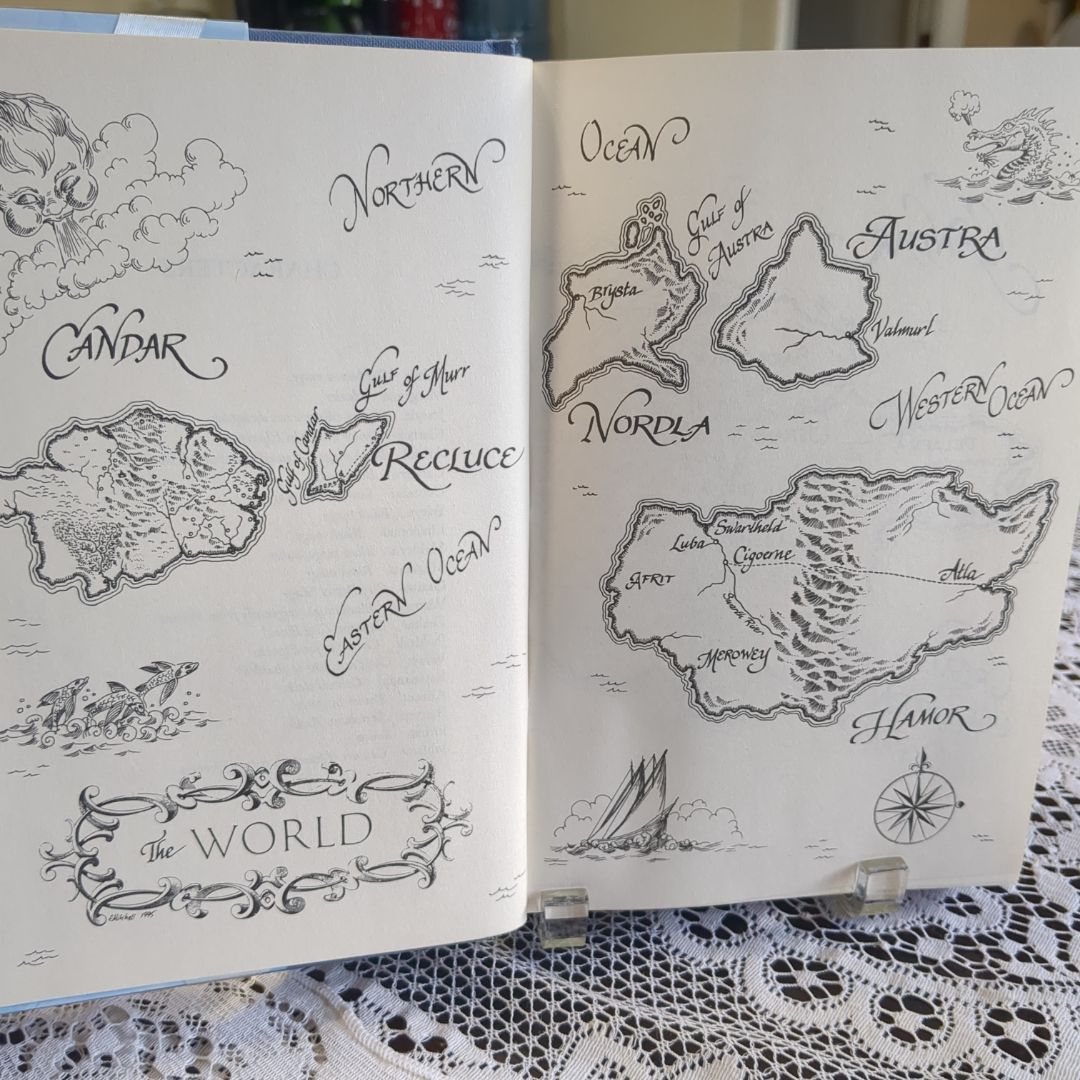 NORTHERN
CANDAR
GULF of Murr
Gulf of Candar
RECLUCE
EASTERN OCEAN
The WORLD
OCEAN
GULF of
AUSTRA
AUSTRA
Brysta
Valmurl
NORDLA
WESTERN OCEAN
Swartheld
Luba
Cigoerne
AFRIT
Atla
Swarth River
MEROWEY
HAMOR